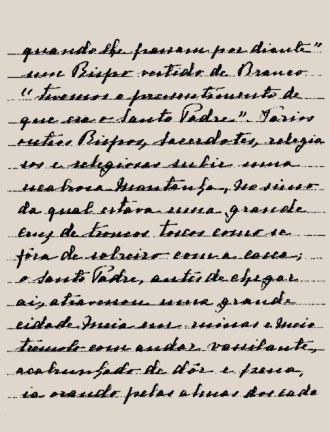 quando lhe passam por diante"
um Bispo vestido de Branco
"tivemos o pressentimento de
que era o Santo Padre". Varios
outros Bispos, Sacerdotes, religio
sos e religiosas subir uma
escabrosa montanha, no simo
da qual estava uma grande
Cruz de troncos toscos como se
fôra de sobreiro com a casca;
o Santo Padre, antes de chegar
aí, atravessou uma grande
cidade meia em ruínas e meio
trémulo com andar vassilante,
acabrunhado de dôr e pena,
ia orando pelas almas dos cada